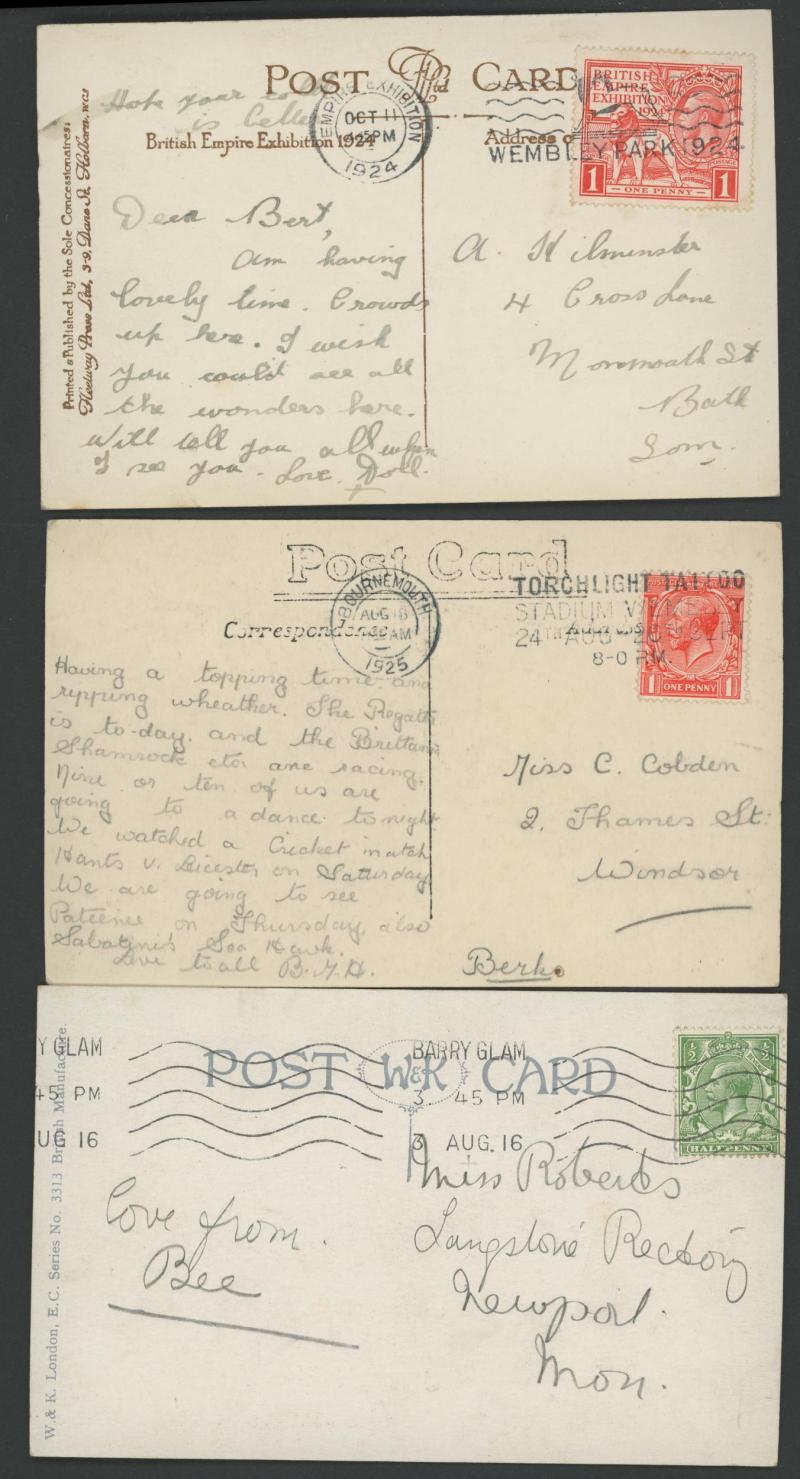 POST CARD
Hope your
is better
British Empire Exhibition 1924
Address o
EMPIRE EXHIBITION
OCT 11
PM
1924
WEMBLEY PARK 1924
BRITISH
EMPIRE
EXHIBITION
1924
POSTAGE
1 ONE PENNY 1
Printed & Published by the Sole Concessionaires:
Fleetway Press Ltd, 3-9, Dane St. Holborn, WC1
Dear Bert,
Am having
lovely time. Crowds
up here. I wish
you could see all
the wonders here.
Will tell you all when
I see you. Love Doll.
A. Kilminster
4 Cross Lane
Monmouth St
Bath
Som.
Post Card
Correspondence
BOURNEMOUTH
AUG 18
AM
1925
TORCHLIGHT TATTOO
STADIUM WEMBLEY
24 AUG
8-0 P.M.
1 ONE PENNY 1
Having a topping time and
ripping wheather. The Regatta
is to-day, and the Brittania
Shamrock etc. are racing.
Nine or ten of us are
going to a dance to night.
We watched a Cricket match
Hants v. Leicester on Saturday
We are going to see
Patience on Thursday, also
Sabatini's Sea Hawk.
Love to all B.G.H.
Miss C. Cobden
2. Thames St:
Windsor
Berks
POST W&K CARD
Y GLAM
45 PM
UG 16
BARRY GLAM
3 45 PM
3 AUG. 16
½ ½
HALFPENNY
W. & K. London, E.C. Series No. 3313 British Manufacture.
Love from.
Bee
Miss Roberts
Langstone Rectory
Newport.
Mon.